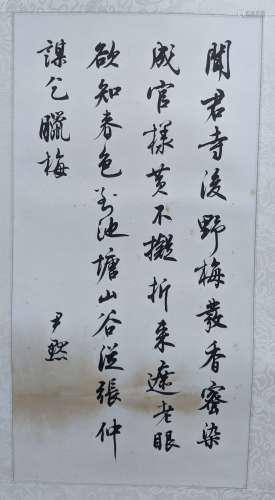 聞君寺後野梅發香蜜染
成官樣黃不擬折來遮老眼
欲知春色到池塘山谷從張仲
謀乞臘梅
尹默